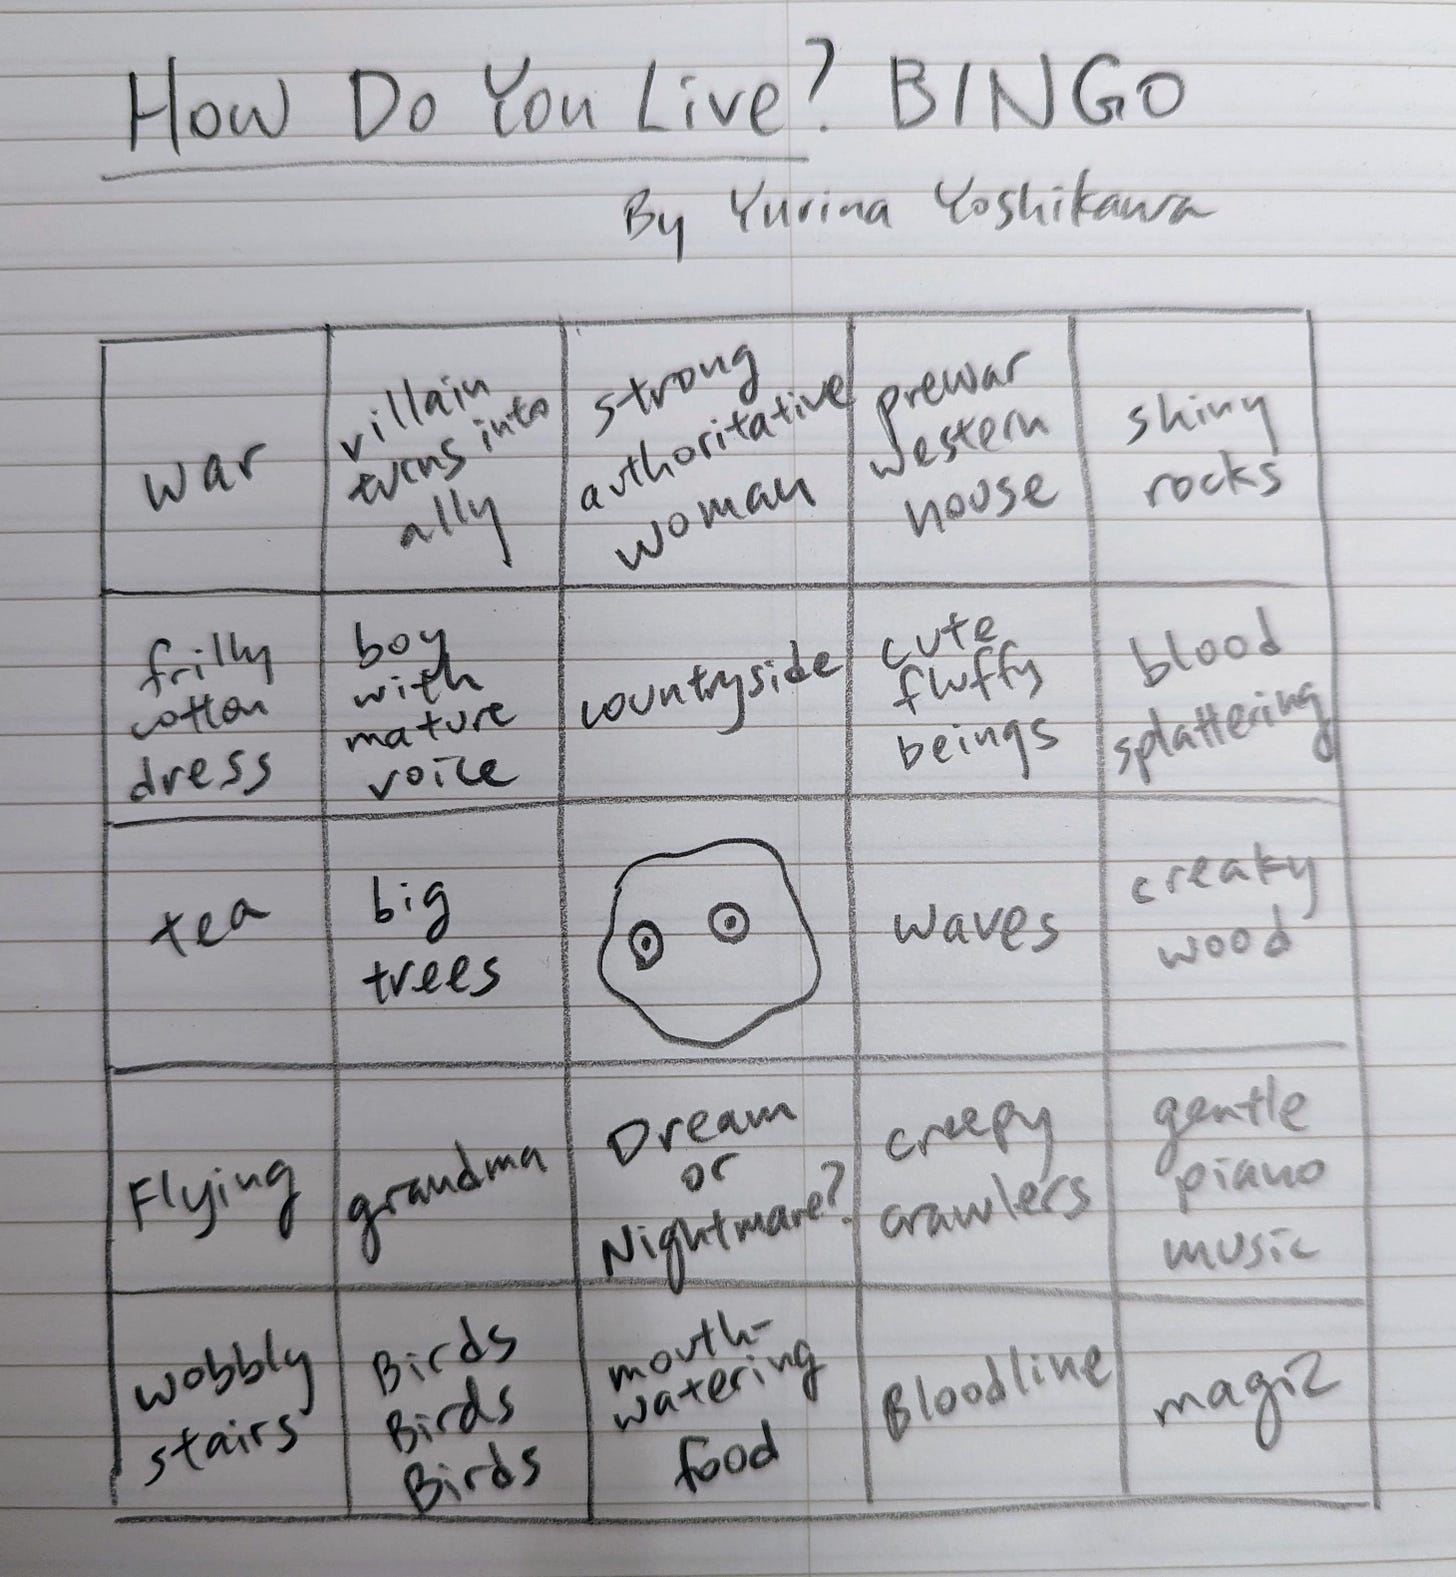 How Do You Live? BINGO
By Yurina Yoshikawa
war
villain
turns into
ally
strong
authoritative
woman
prewar
western
house
shiny
rocks
frilly
cotton
dress
boy
with
mature
voice
countryside
cute
fluffy
beings
blood
splattering
tea
big
trees
waves
creaky
wood
Flying
grandma
Dream
or
Nightmare?
creepy
crawlers
gentle
piano
music
wobbly
stairs
Birds
Birds
Birds
mouth-
watering
food
Bloodline
magic